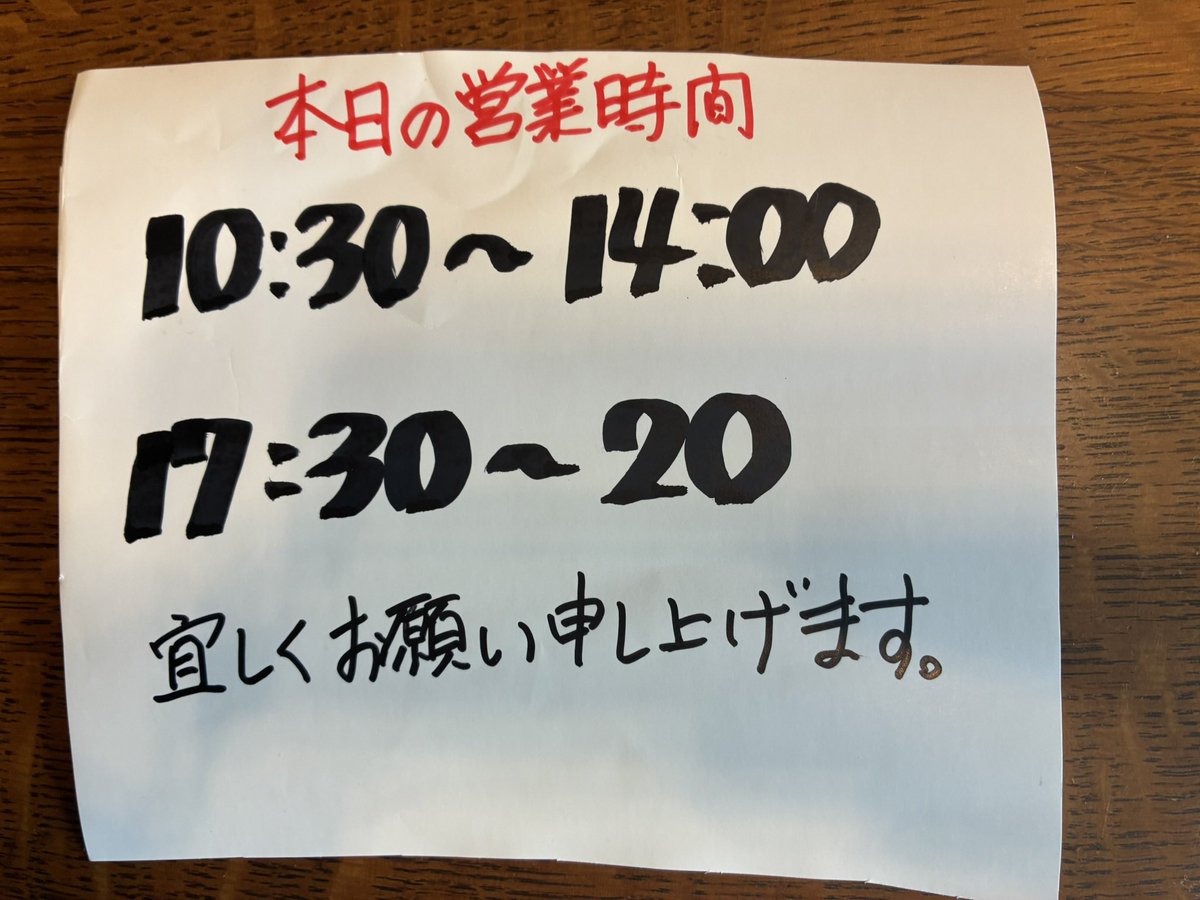 本日の営業時間
10:30～14:00
17:30～20
宜しくお願い申し上げます。